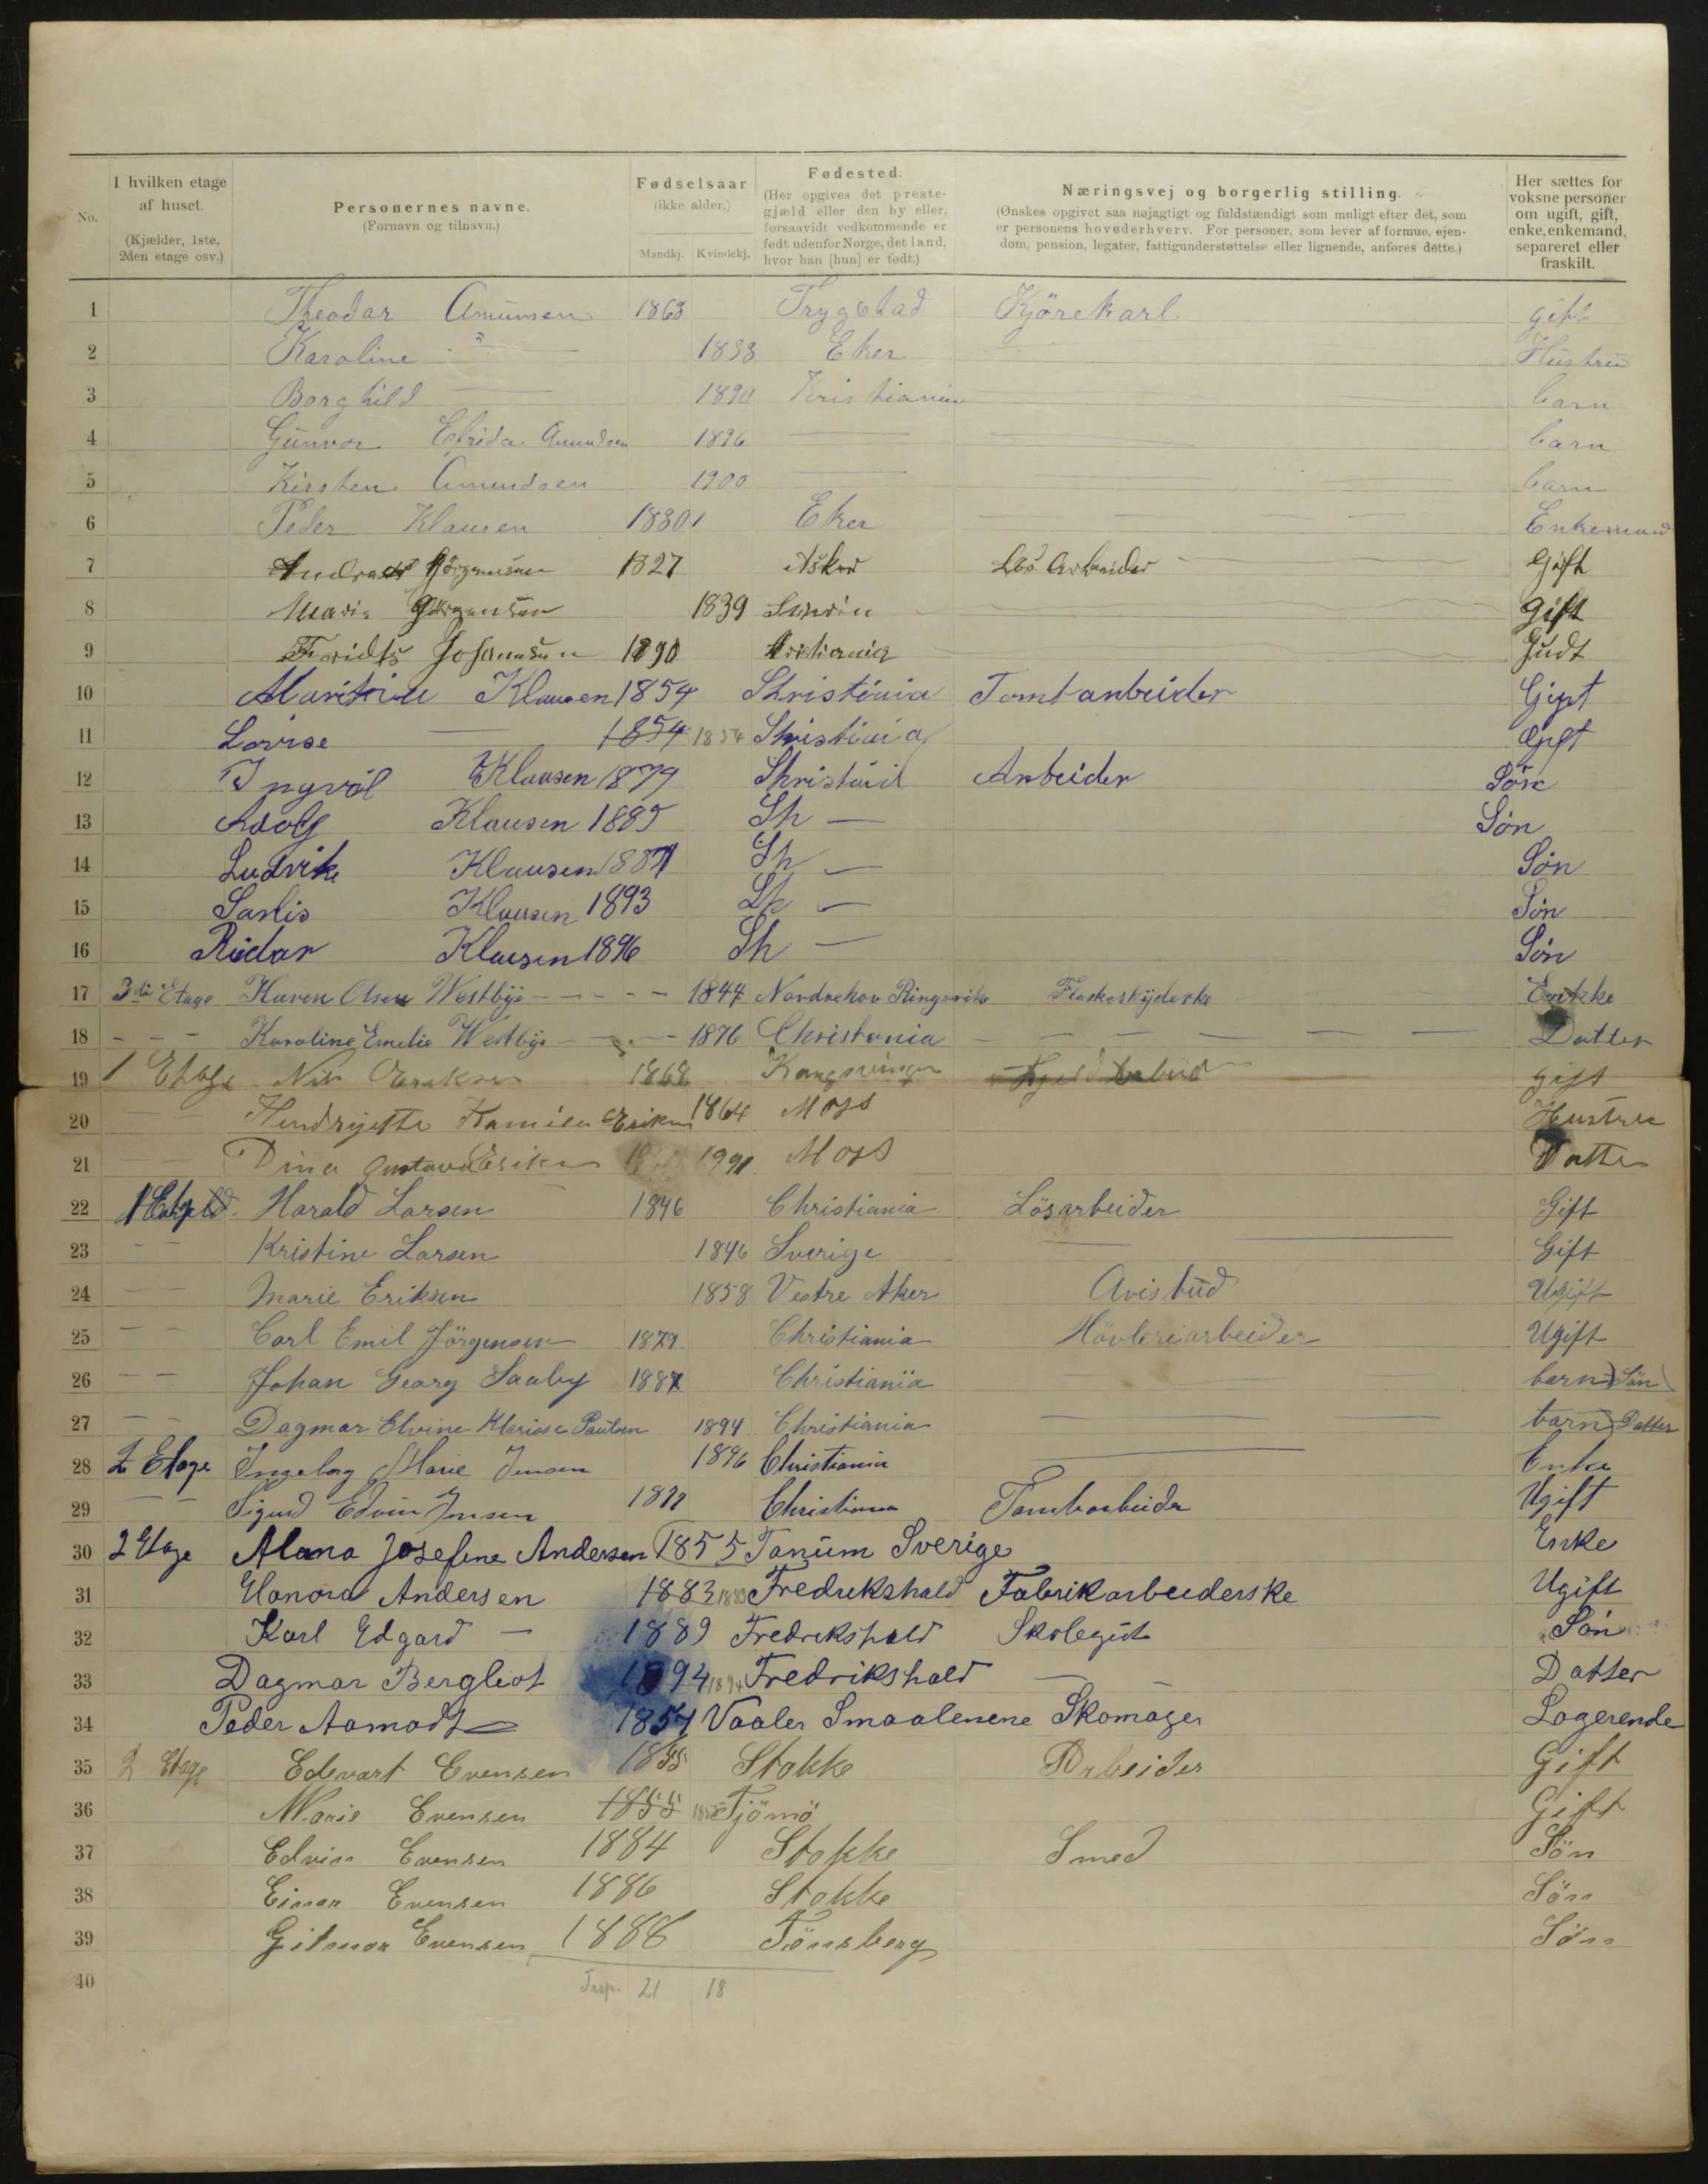 No.
I hvilken etage af huset.
(Kjælder, 1ste, 2den etage osv.)
Personernes navne.
(Fornavn og tilnavn.)
Fødselsaar
(ikke alder.)
Mandkj. Kvindekj.
Fødested.
(Her opgives det præste-
gjæld eller den by eller,
forsaavidt vedkommende er
født udenfor Norge, det land,
hvor han [hun] er født.)
Næringsvej og borgerlig stilling.
(Ønskes opgivet saa nøjagtigt og fuldstændigt som muligt efter det, som
er personens hovederhverv. For personer, som lever af formue, ejen-
dom, pension, legater, fattigunderstøttelse eller lignende, anføres dette.)
Her sættes for
voksne personer
om ugift, gift,
enke, enkemand,
separeret eller
fraskilt.
1 Theodar Amunsen 1868 Trygstad Kjörekarl gift
2 Karoline " — Eker Hustru
3 Borghild — 1890 Kristiania barn
4 Gunvor Elrida Amundsen 1896 — barn
5 Kirsten Amundsen 1900 — barn
6 Peder Klausen 1830 Eker — Enkemand
7 Andreas Jörgensen 1827 Asker Lös Arbeider Gift
8 Maria 1839 gift
9 Johansen 1890
10 Klausen 1854 Tomtanbeider Gipt
11 Lovise — 1854 1854
12 Ingvöl Klausen 1879 Anbeider Sön
13 Adolf Klausen 1885 Sh — Sön
14 Ludvik Klausen Sh — Sön
15 Sarlis Klausen 1893 Sh — Sön
16 Ridar Klausen 1896 Sh — Sön
17 3die Etage Karen Olsen Westbye 1844 Nordrehov Ringerike Flaskeskyderske Enke
18 - - - Karoline Emelie Westbye 1876 Christania — Datter
19 1 Etage Nils Eriksen 1868 Kongsvinger gift
20 — Hendryette Kamilla Eriksen 1864 Moss Hustru
21 — Dina Gustava Eriksen Moss Datter
22 1 Etage Harald Larsen 1846 Christiania Lösarbeider Gift
23 - - Kristine Larsen 1846 Sverige — Gift
24 - - Marie Eriksen 1858 Vestre Aker Avisbud Ugift
25 - - Carl Emil Jörgensen 1879 Christiania Hövleriarbeider Ugift
26 - - Johan Georg Saaby 1887 Christiania barn (Sön)
27 - - Dagmar Elvine Klarisse Paulsen 1894 Christiania — barn Datter
28 2 Etage Ingeborg Marie Jensen Christiania — Enke
29 - - Sigurd Edvin Jensen Christiania Tomtarbeider Ugift
30 2 Etage Alana Josefine Andersen 1855 Tanum Sverige Enke
31 Elanora Andersen 1883 1883 Fredrikshald Fabrikarbeiderske Ugift
32 Karl Edgard — 1889 Fredrikshald Skolegut Sön
33 Dagmar Bergliot 1894 1894 Fredrikshald — Datter
34 Peder Aamodt 1854 Vaaler Smaalenene Skomager Logerende
35 2 Etage Edevart Evensen 1855 Stokke Arbeider Gift
36 Marie Evensen 1855 1855 Tjömö Gift
37 Edvin Evensen 1884 Stokke Smed Sön
38 Einar Evensen 1886 Stokke Sön
39 Gilmar Evensen 1888 Tönsberg Sön
40 Trsp. 21 18